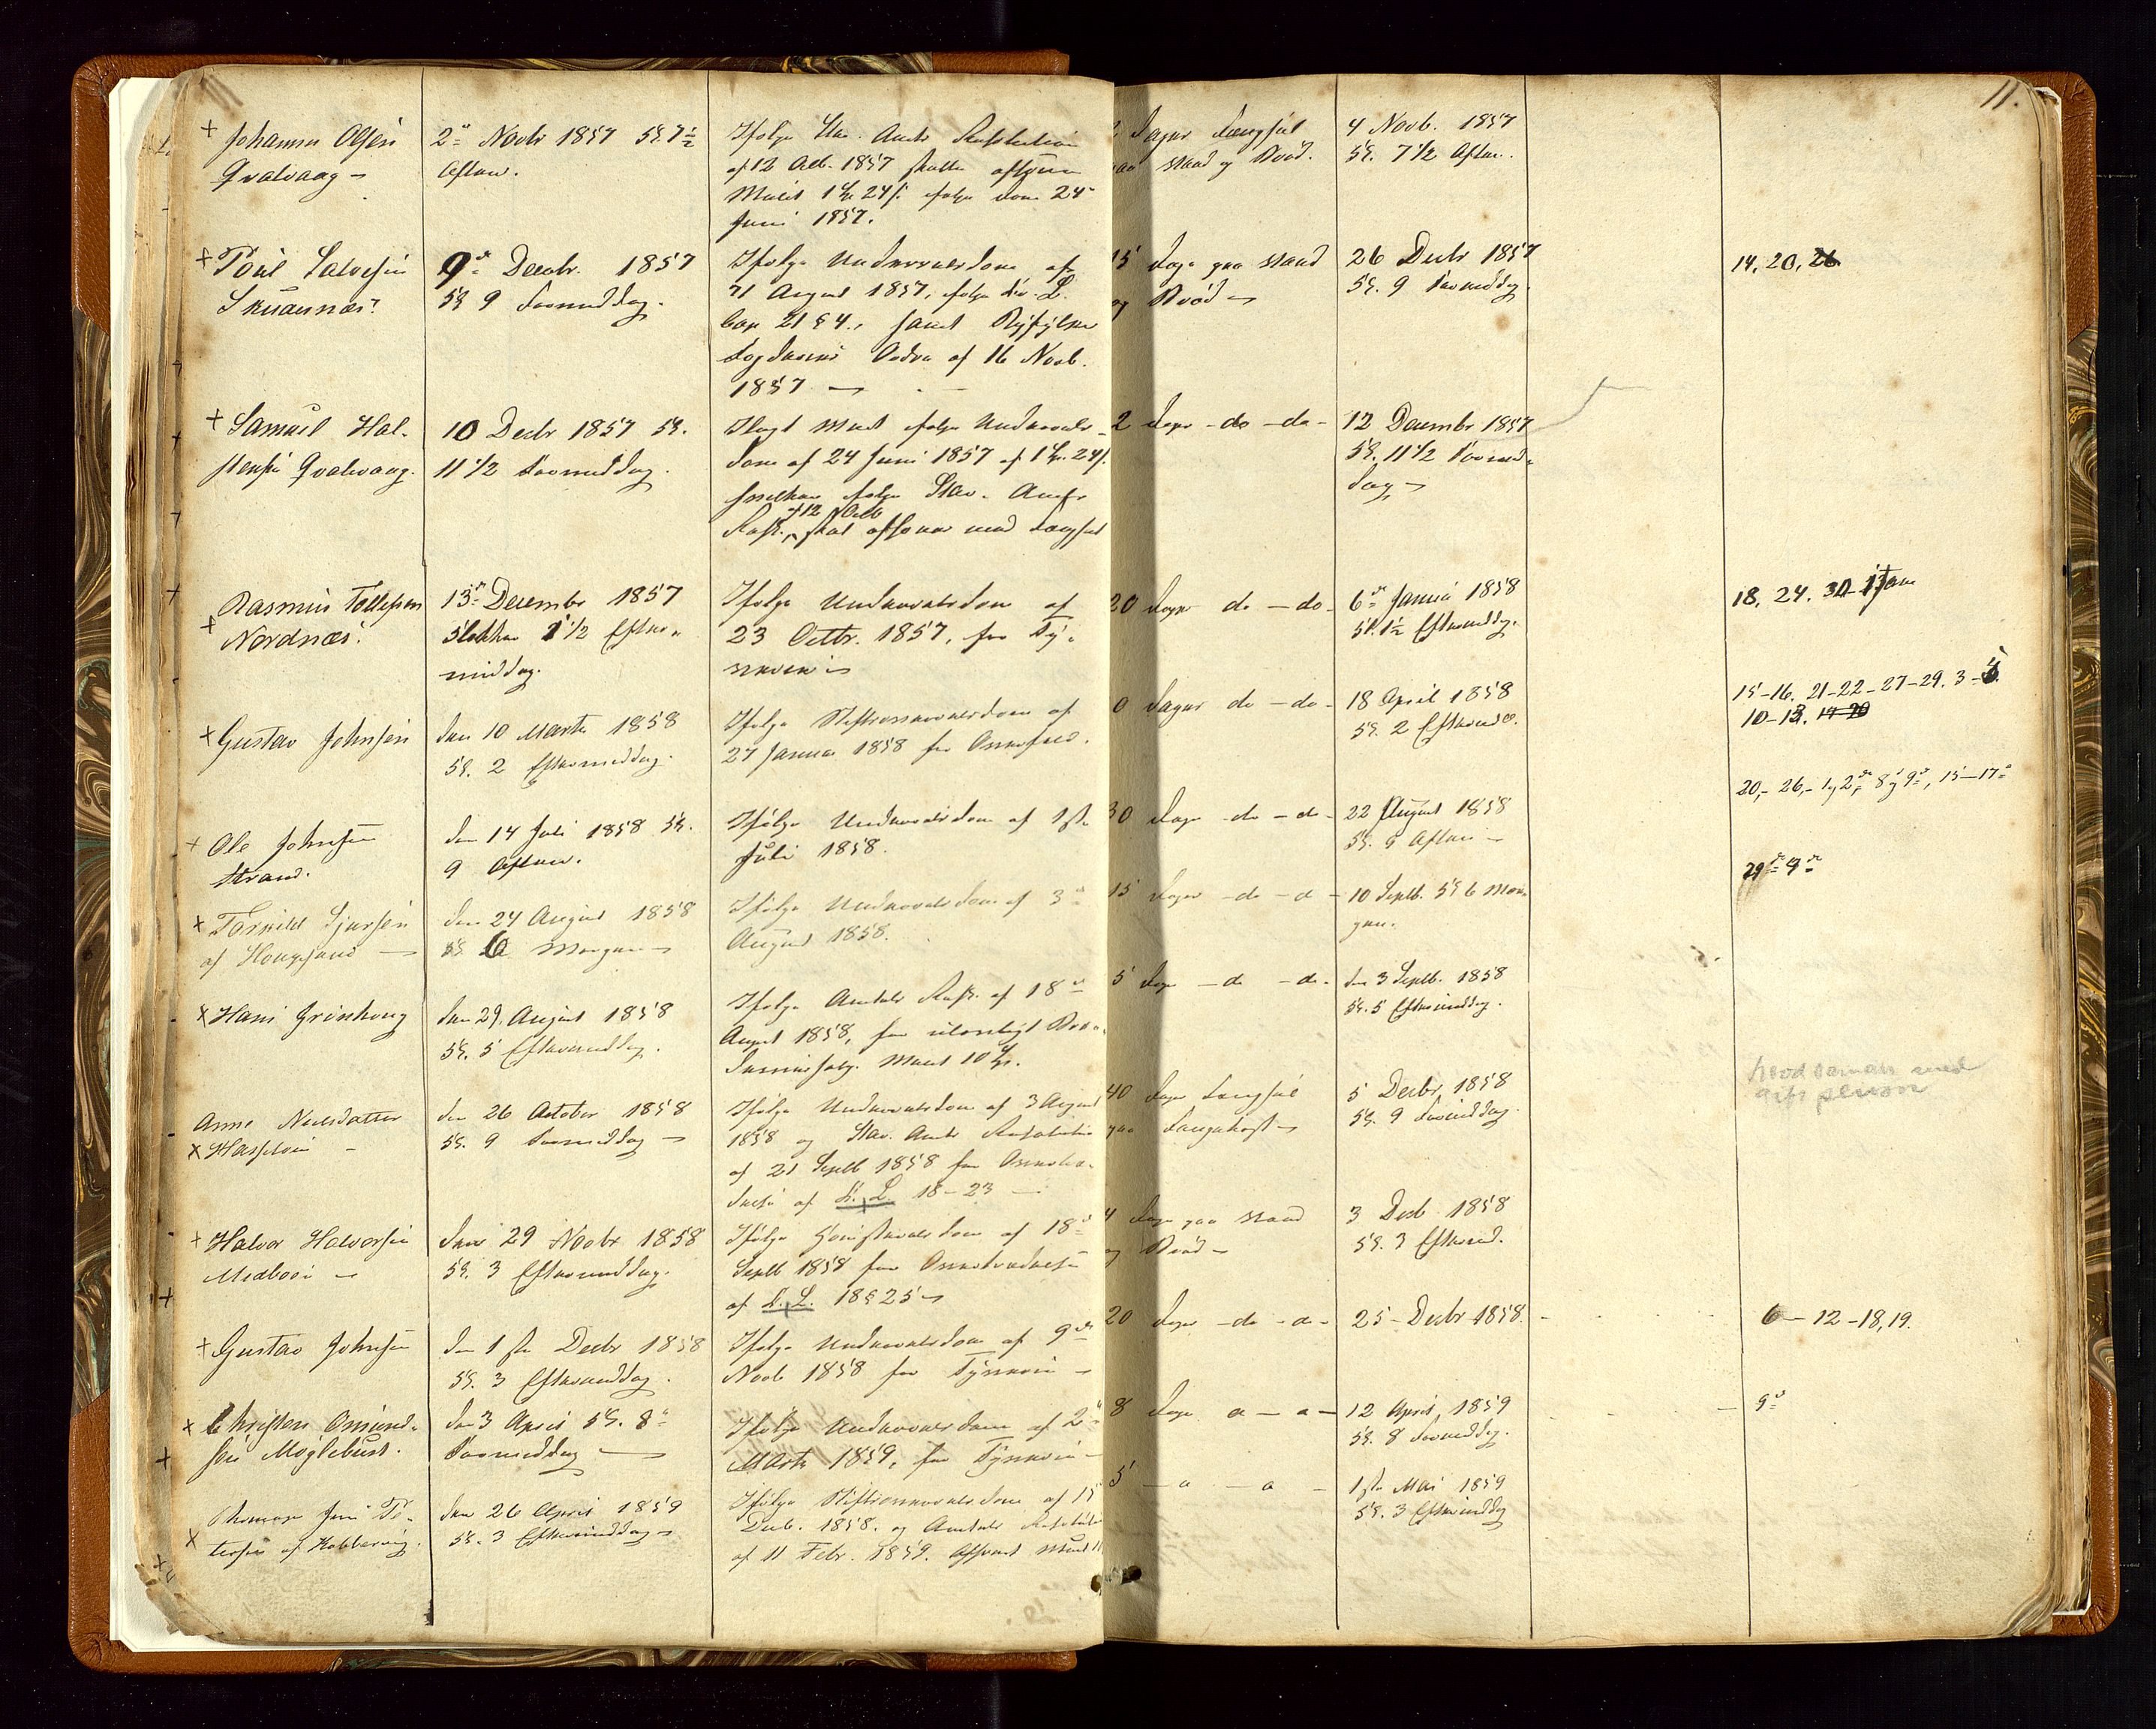 11.
Johannes Olsen
Qvalvaag
2den Novbr 1857 Kl. 7 1/2
Aften.
Ifølge Stav. Amts Resolution
af 12 Octb. 1857 skulle afsone
Mulct 1 Spd 24 s. ifølge Dom 24de
Juni 1857.
2 Dages Fængsel
paa Vand og Brød.
4 Novb. 1857
Kl. 7 1/2 Aften.
Poul Salvesen
Skudesnæs
9de Decbr. 1857
Kl. 9 Formiddag.
Ifølge Underretsdom af
21 August 1857, ifølge Kr. L.
Cap 21 § 4., samt Ryfylke
Fogderies Ordre af 16 Novb.
1857
15 Dage paa Vand
og Brød
26 Decbr 1857
Kl. 9 Formiddag.
14, 20, 26
Samuel Hal-
stensen Qvalvaag.
10 Decbr 1857 Kl.
11 1/2 Formiddag.
Ilagt Mulct ifølge Underrets-
dom af 24 Juni 1857 af 1 Spd. 24 s.
ifølge Stav. Amts
Res. af 12 Octb skal afsones med Fængsel
2 Dage - do - do -
12 Decembr 1857
Kl. 11 1/2 Formid-
dag
Rasmus Tollefsen
Nordnæs.
13de Decembr 1857
Klokken 1 1/2 Efter-
middag.
Ifølge Underretsdom af
23 Octbr. 1857, for Ty-
verie
20 Dage do - do -
6te Januar 1858
Kl. 1 1/2 Eftermiddg.
18. 24. 30
Gustav Johnsen
Den 10 Marts 1858
Kl. 2 Eftermiddag.
Ifølge Stiftsoverretsdom af
27 Januar 1858 for
0 Dages do - do -
18 April 1858
Kl. 2 Eftermid.
15-16. 21-22-27-29. 3-
10-13. 19 20
Ole Johnsen
Strand.
den 14 Juli 1858 Kl.
9 Aften.
Ifølge Underretsdom af 1ste
Juli 1858.
30 Dage - do - do -
22 August 1858
Kl. 9 Aften
20,- 26,- 1 og 2den 8 og 9de, 15-17de
Sjursen
af Hougesund
den 24 August 1858
Kl. 6 Morgen
Ifølge Underretsdom af 3de
August 1858.
15 Dage - do - a -
10 Septb. Kl 6 Mor-
gen.
29de 9de
Hans Grindhoug
Den 29. August 1858
Kl. 5 Eftermiddag.
Ifølge Amtets Res. af 18de
August 1858, for ulovligt Bræn-
deviinssalg. Mulct 10 Spd.
5 Dage - do - do -
den 3 Septb. 1858
Kl. 5 Eftermiddag.
Anne Neelsdatter
Hasseløen
den 26 October 1858
Kl. 9 Formiddag
Ifølge Underretsdom af 3 August
1858 og Stav. Amts Resolution
af 21 Septb 1858 for Overtræ-
delse af Kr. L. 18-23
40 Dage Fængsel
paa Fangekost
5 Decbr. 1858
Kl. 9 Formiddag.
hvad saman med
gift person
Halvor Halvorsen
Medboen
Den 29 Novbr 1858
Kl. 3 Eftermiddag.
Ifølge Høiesteretsdom af 18de
Septb 1858 for Overtrædelse
af Kr. L. 18 § 25
4 Dage paa Vand
og Brød
3 Decb 1858
Kl. 3 Eftermid.
Gustav Johnsen
den 1ste Decbr 1858
Kl. 3 Eftermiddag.
Ifølge Underretsdom af 9de
Novb 1858 for Tyverie
20 Dage - do - a -
25 - Decbr 1858.
6 - 12 - 18, 19.
Christen Osmund-
sen Møglebust.
den 3 April Kl. 8
Formiddag
Ifølge Underretsdom af 2den
Marts 1859, for Tyverie
8 Dage a - a -
12 April 1859
Kl. 8 Formiddg.
9de
Thomas Jens Pe-
tersen af Kobbervig.
Den 26 April 1859
Kl. 3 Eftermiddag
Ifølge Stiftsoverretsdom af 15
Decb. 1858. og Amtets Resolution
af 11 Febr. 1859. Afsonet Mulct
5 - a - a -
1ste Mai 1859
Kl. 3 Eftermiddg